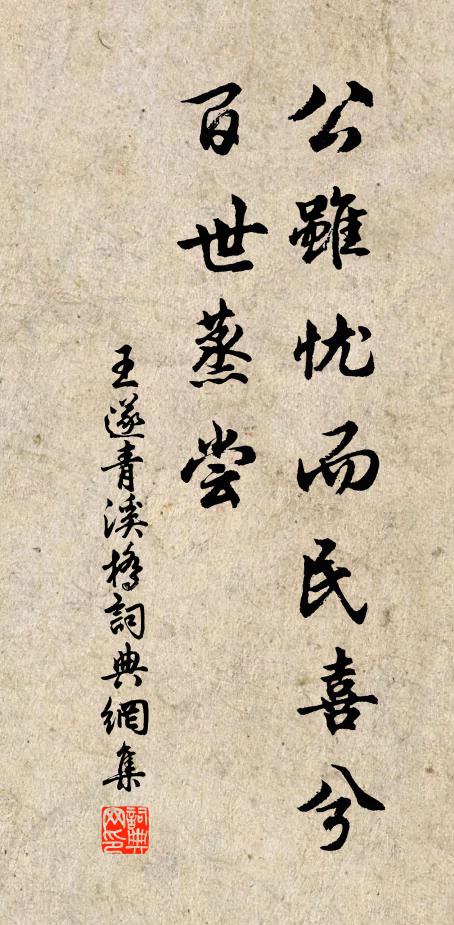 公雖忧而民喜兮
百世蒸尝
王遂青溪橋詞典網集
詞典
网印